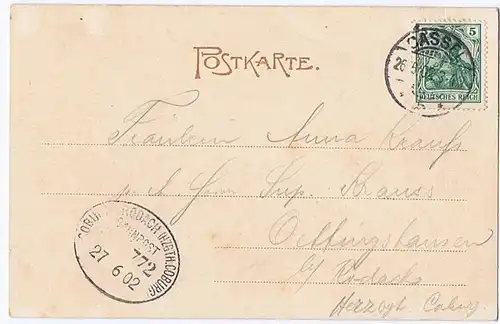 POSTKARTE.
5
DEUTSCHES REICH
CASSEL
26
Fräulein Anna Krauss
p. A Herrn Sup. Krauss
Oettingshausen
b/ Rodach
Herzogt. Coburg.
RODACH (HZGTH. COBURG)
BAHNPOST
772
27 6 02